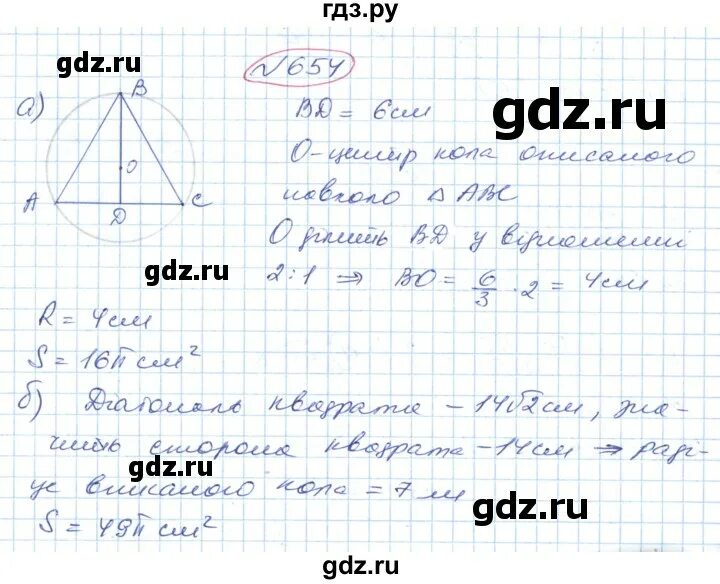 гдз.ру
gdz.ru
№ 654
а)
B
O
A
D
C
BD = 6см
gdz.ru
О-центр кола описаного
навколо △ ABC
О ділить BD у відношенні
2:1 ⇒ BO = 6/3 · 2 = 4см
gdz.ru
R = 4см
S = 16π см²
б) Діагональ квадрата - 14√2см, зна-
чить сторона квадрата - 14см ⇒ раді-
gdz.ru
ус вписаного кола = 7 м
S = 49π см²
gdz.ru
gdz.ru